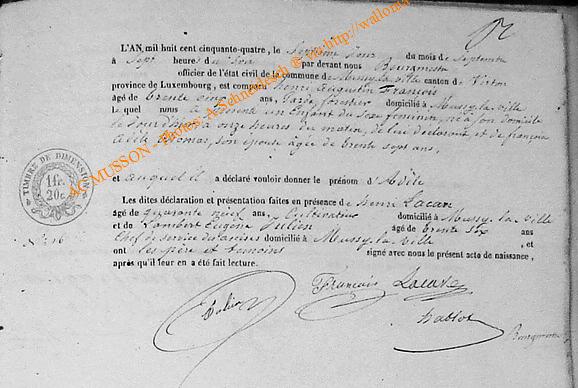 L'AN, mil huit cent cinquante-quatre, le Septième jour du mois de Septembre
à Sept heures du Soir par devant nous Bourgmestre
officier de l'état civil de la commune de Mussy-la-ville canton de Virton
province de Luxembourg, est comparu henri Augustin François
âgé de trente cinq ans, Garde forestier domicilié à Mussy-la-ville
Lequel nous a présenté un Enfant du Sexe féminin, né à Son domicile
à onze heures du matin, de lui déclarant et de
son épouse âgée de trente sept ans,
et auquel il a déclaré vouloir donner le prénom d'Adèle
Les dites déclaration et présentation faites en présence de henri Lacave
âgé de quarante neuf ans, Cultivateur domicilié à Mussy-la-ville
et de Lambert Eugène Julien âgé de trente Six ans,
Chef de service des accises domicilié à Mussy-la-ville, et
ont les père et témoins signé avec nous le présent acte de naissance,
après qu'il leur en a été fait lecture.
TIMBRE DE DIMENSION
1 fr.
20 c.
N° 16
François Lacave
Julien
Bourgmestre
AG MUSSON - Photos: A.Schneidesch ® via http://wallonia